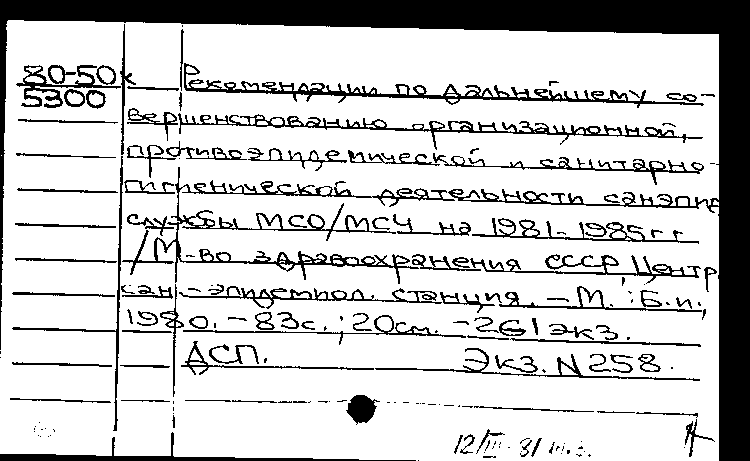 80-50к
5300
Рекомендации по дальнейшему со-
вершенствованию организационной,
противоэпидемической и санитарно-
гигиенической деятельности санэпид
службы МСО/МСЧ на 1981-1985гг
/М-во здравоохранения СССР, Центр.
сан.-эпидемиол. станция. – М. : Б.и.,
1980. – 83с. ; 20см. – 261экз.
ДСП. Экз. N 258.
12/III-81